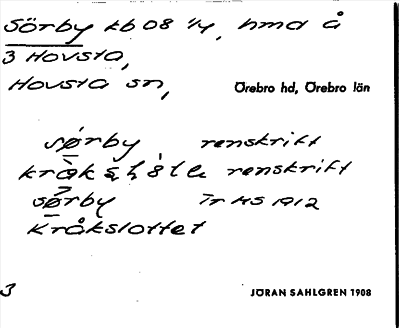 Sörby kb 08 1/4, hmd å
3 Hovsta,
Hovsta sn,
Örebro hd, Örebro län
sørby renskrift
renskrift
sørby Tr HS 1912
Kråkslottet
3
JÖRAN SAHLGREN 1908